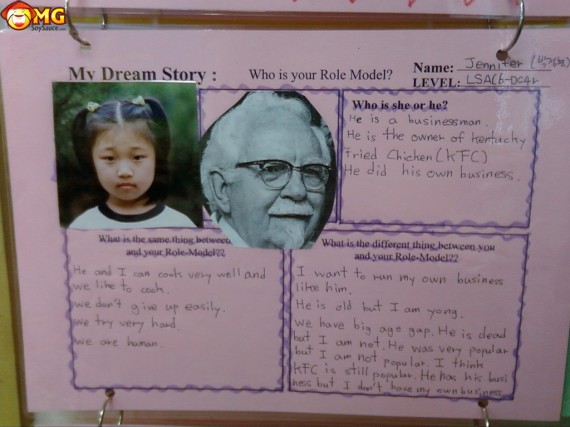 OMG
SoySauce
My Dream Story :
Who is your Role Model?
Name: Jennifer
LEVEL: LSA
Who is she or he?
He is a businessman.
He is the owner of Kentucky
Fried Chicken (KFC)
He did his own business.
What is the same thing between
and your Role-Model??
He and I can cook very well and
we like to cook.
we don't give up easily.
we try very hard.
we are human.
What is the different thing between you
and your Role-Model??
I want to run my own business
like him.
He is old but I am yong.
we have big age gap. He is dead
but I am not. He was very popular
but I am not popular. I think
KFC is still popular. He has his busi
ness but I don't have my own business